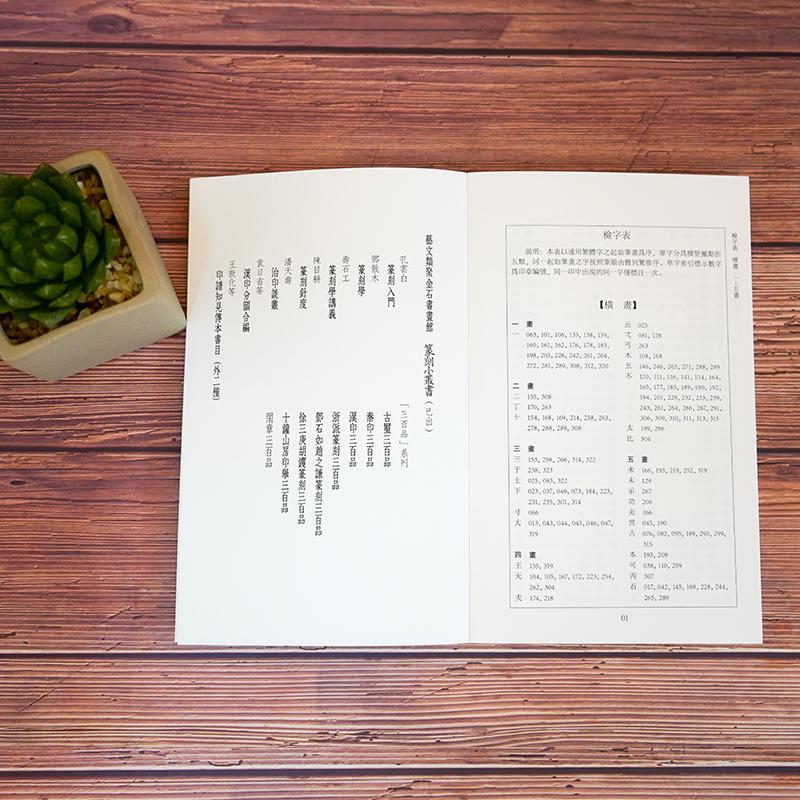 藝文類聚金石書畫館 篆刻小叢書（已出）
孔雲白
篆刻入門
鄧散木
篆刻學
壽石工
篆刻學講義
陳目耕
篆刻針度
潘天壽
治印談叢
袁日省等
漢印分韻合編
王敦化等
印譜知見傳本書目（外二種）
「三百品」系列
古璽三百品
秦印三百品
漢印三百品
浙派篆刻三百品
鄧石如趙之謙篆刻三百品
徐三庚胡钁篆刻三百品
十鐘山房印舉三百品
閑章三百品
檢字表 橫畫 一—五畫
檢字表
説明：本表以通用繁體字之起始筆畫爲序，單字分爲橫竪撇點折
五類，同一起始筆畫之字按照筆順由簡到繁排序。單字索引標示數字
爲印章編號，同一印中出現的同一字僅標注一次。
【橫 畫】
一 畫
一 063, 101, 106, 133, 138, 159,
160, 161, 162, 176, 178, 183,
198, 203, 226, 242, 261, 264,
272, 281, 289, 308, 312, 320
二 畫
二 155, 308
丁 170, 263
十 154, 168, 169, 214, 258, 263,
278, 288, 289, 308
三 畫
三 153, 258, 266, 314, 322
于 238, 323
士 025, 083, 322
下 023, 037, 049, 073, 184, 223,
231, 235, 301, 314
寸 066
大 013, 043, 044, 045, 046, 047,
319
四 畫
王 155, 319
天 104, 105, 167, 172, 223, 254,
262, 304
夫 174, 218
云 025
弌 081, 128
丐 263
木 108, 168
五 146, 246, 263, 271, 288, 289
不 110, 111, 116, 141, 154, 164,
165, 177, 185, 189, 190, 192,
194, 201, 229, 232, 233, 239,
243, 261, 264, 286, 287, 291,
306, 309, 310, 311, 313, 315
太 199, 296
比 304
五 畫
未 166, 193, 219, 252, 319
末 129
示 267
功 206
去 166
世 045, 190
古 076, 082, 095, 189, 290, 299,
315
本 193, 209
可 038, 110, 299
丙 307
石 017, 042, 145, 188, 228, 244,
265, 289
01